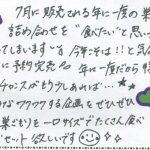 7月に販売される年に一度の巣
詰め合わせを"食べたい"と思っ
てしまいます 今年こそは!!と気
に予約完売 年に一度だから特
チャンスがもう少しあれば…★
なワクワクする企画をぜひぜひ
巣ごもり 一口サイズでたくさん食べ
セット 欲しいです